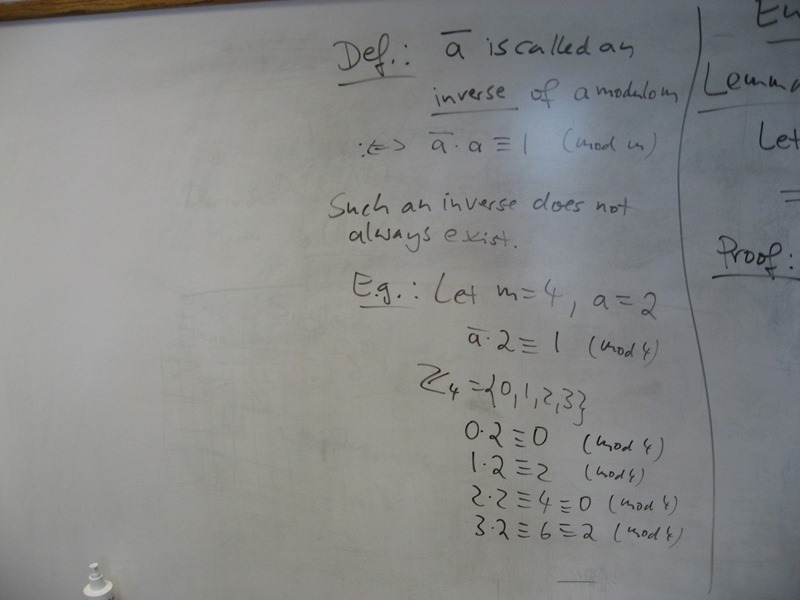 Def.: a̅ is called an
inverse of a modulo m
:<=> a̅·a ≡ 1 (mod m)
Such an inverse does not
always exist.
E.g.: Let m=4, a=2
a̅·2 ≡ 1 (mod 4)
ℤ₄ = {0,1,2,3}
0·2 ≡ 0 (mod 4)
1·2 ≡ 2 (mod 4)
2·2 ≡ 4 ≡ 0 (mod 4)
3·2 ≡ 6 ≡ 2 (mod 4)
Lemma
Let
=
Proof: